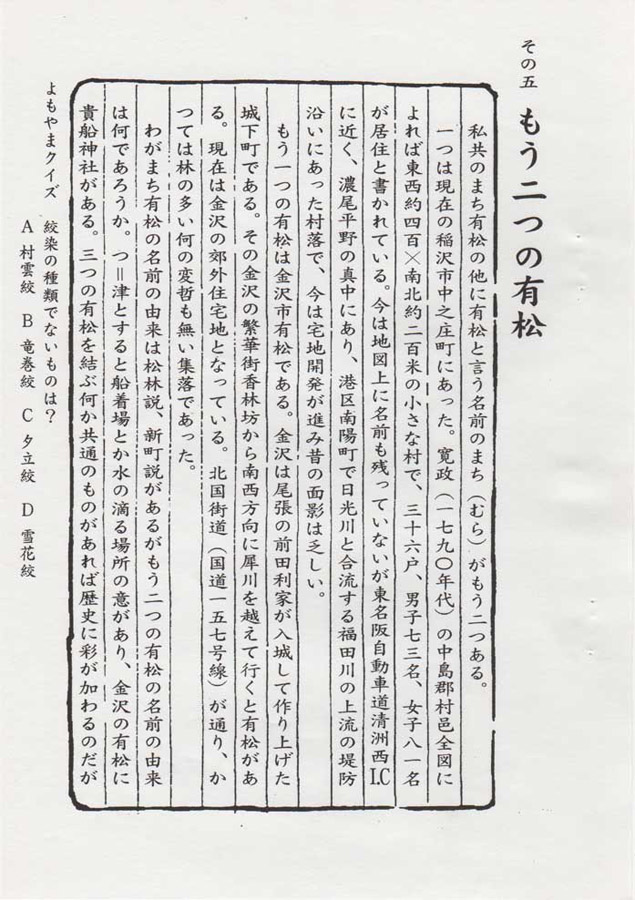 その五　もう二つの有松
私共のまち有松の他に有松と言う名前のまち（むら）がもう二つある。
一つは現在の稲沢市中之庄町にあった。寛政（一七九〇年代）の中島郡村邑全図に
よれば東西約四百×南北約二百米の小さな村で、三十六戸、男子七三名、女子八一名
が居住と書かれている。今は地図上に名前も残っていないが東名阪自動車道清洲西I.C
に近く、濃尾平野の真中にあり、港区南陽町で日光川と合流する福田川の上流の堤防
沿いにあった村落で、今は宅地開発が進み昔の面影は乏しい。
もう一つの有松は金沢市有松である。金沢は尾張の前田利家が入城して作り上げた
城下町である。その金沢の繁華街香林坊から南西方向に犀川を越えて行くと有松があ
る。現在は金沢の郊外住宅地となっている。北国街道（国道一五七号線）が通り、か
つては林の多い何の変哲も無い集落であった。
わがまち有松の名前の由来は松林説、新町説があるがもう二つの有松の名前の由来
は何であろうか。つ＝津とすると船着場とか水の滴る場所の意があり、金沢の有松に
貴船神社がある。三つの有松を結ぶ何か共通のものがあれば歴史に彩が加わるのだが
よもやまクイズ　絞染の種類でないものは？
A 村雲絞　B 竜巻絞　C 夕立絞　D 雪花絞